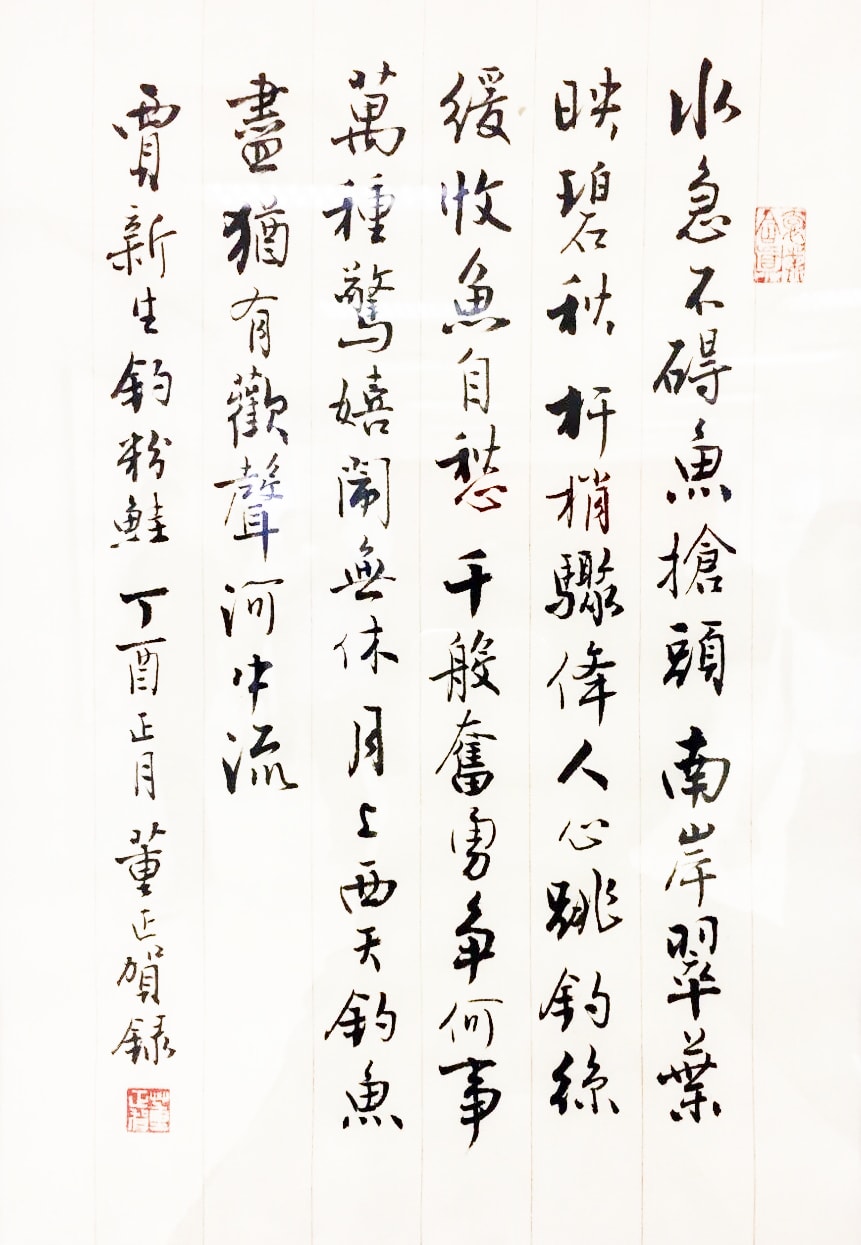 水急不碍魚搶頭南岸翠葉
映碧秋杆梢驟降人心跳釣絲
緩收魚自愁千般奮勇爭何事
萬種驚嬉鬧無休月上西天釣魚
盡猶有歡聲河中流
賈新生釣粉鮭丁酉正月董正賀錄
董正賀